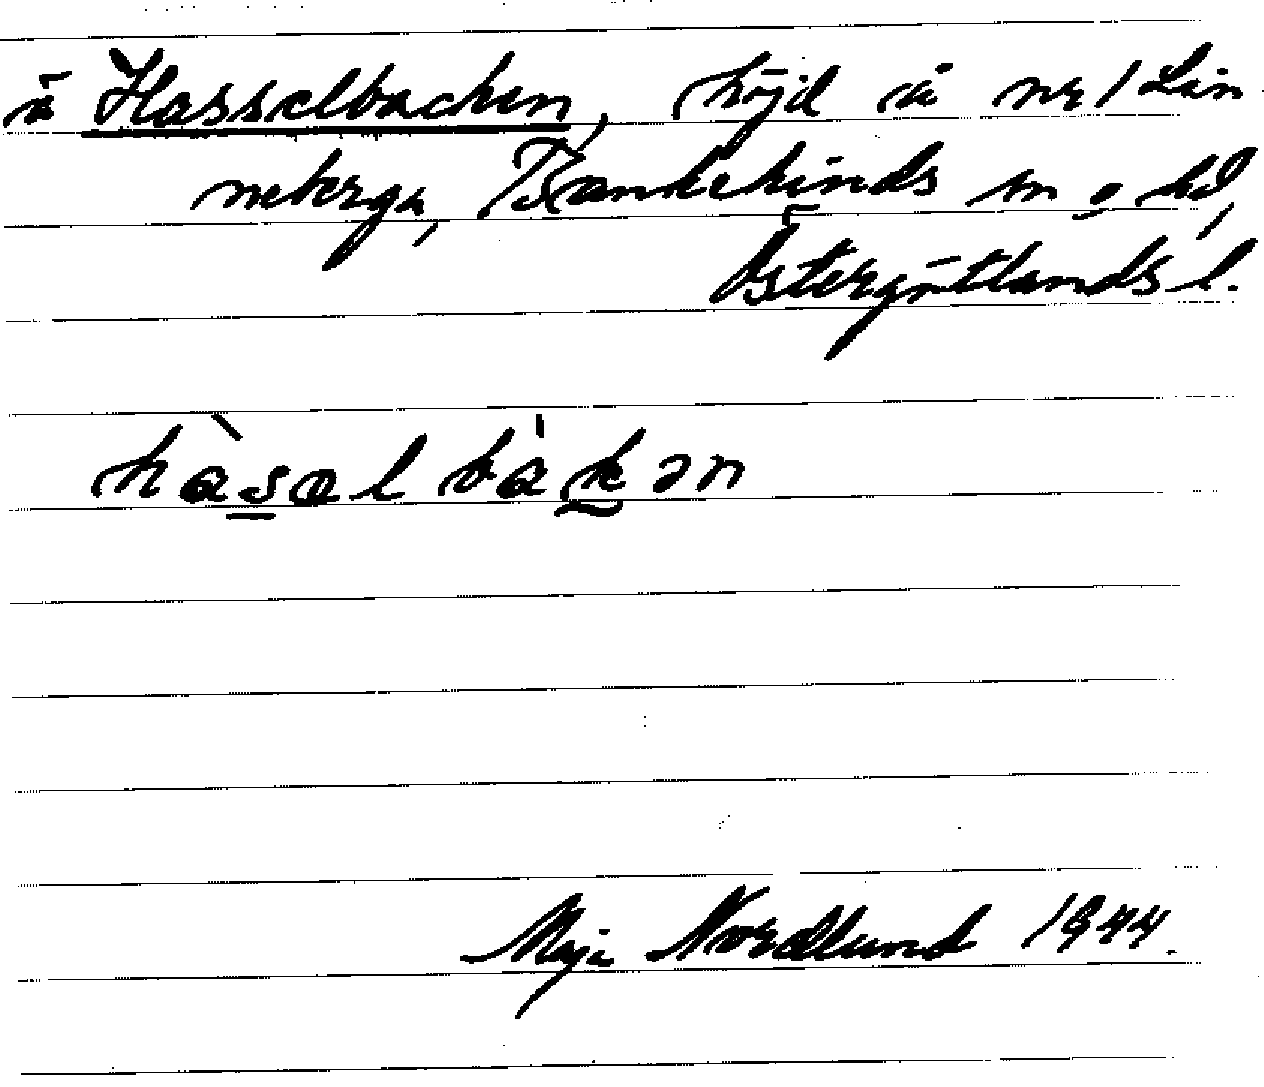 å Hasselbacken, höjd å nr 1 Lin
neberga, Bankekinds sn o hd,
Östergötlands l.
hàsəl bàkən
Maja Nordlund 1944.